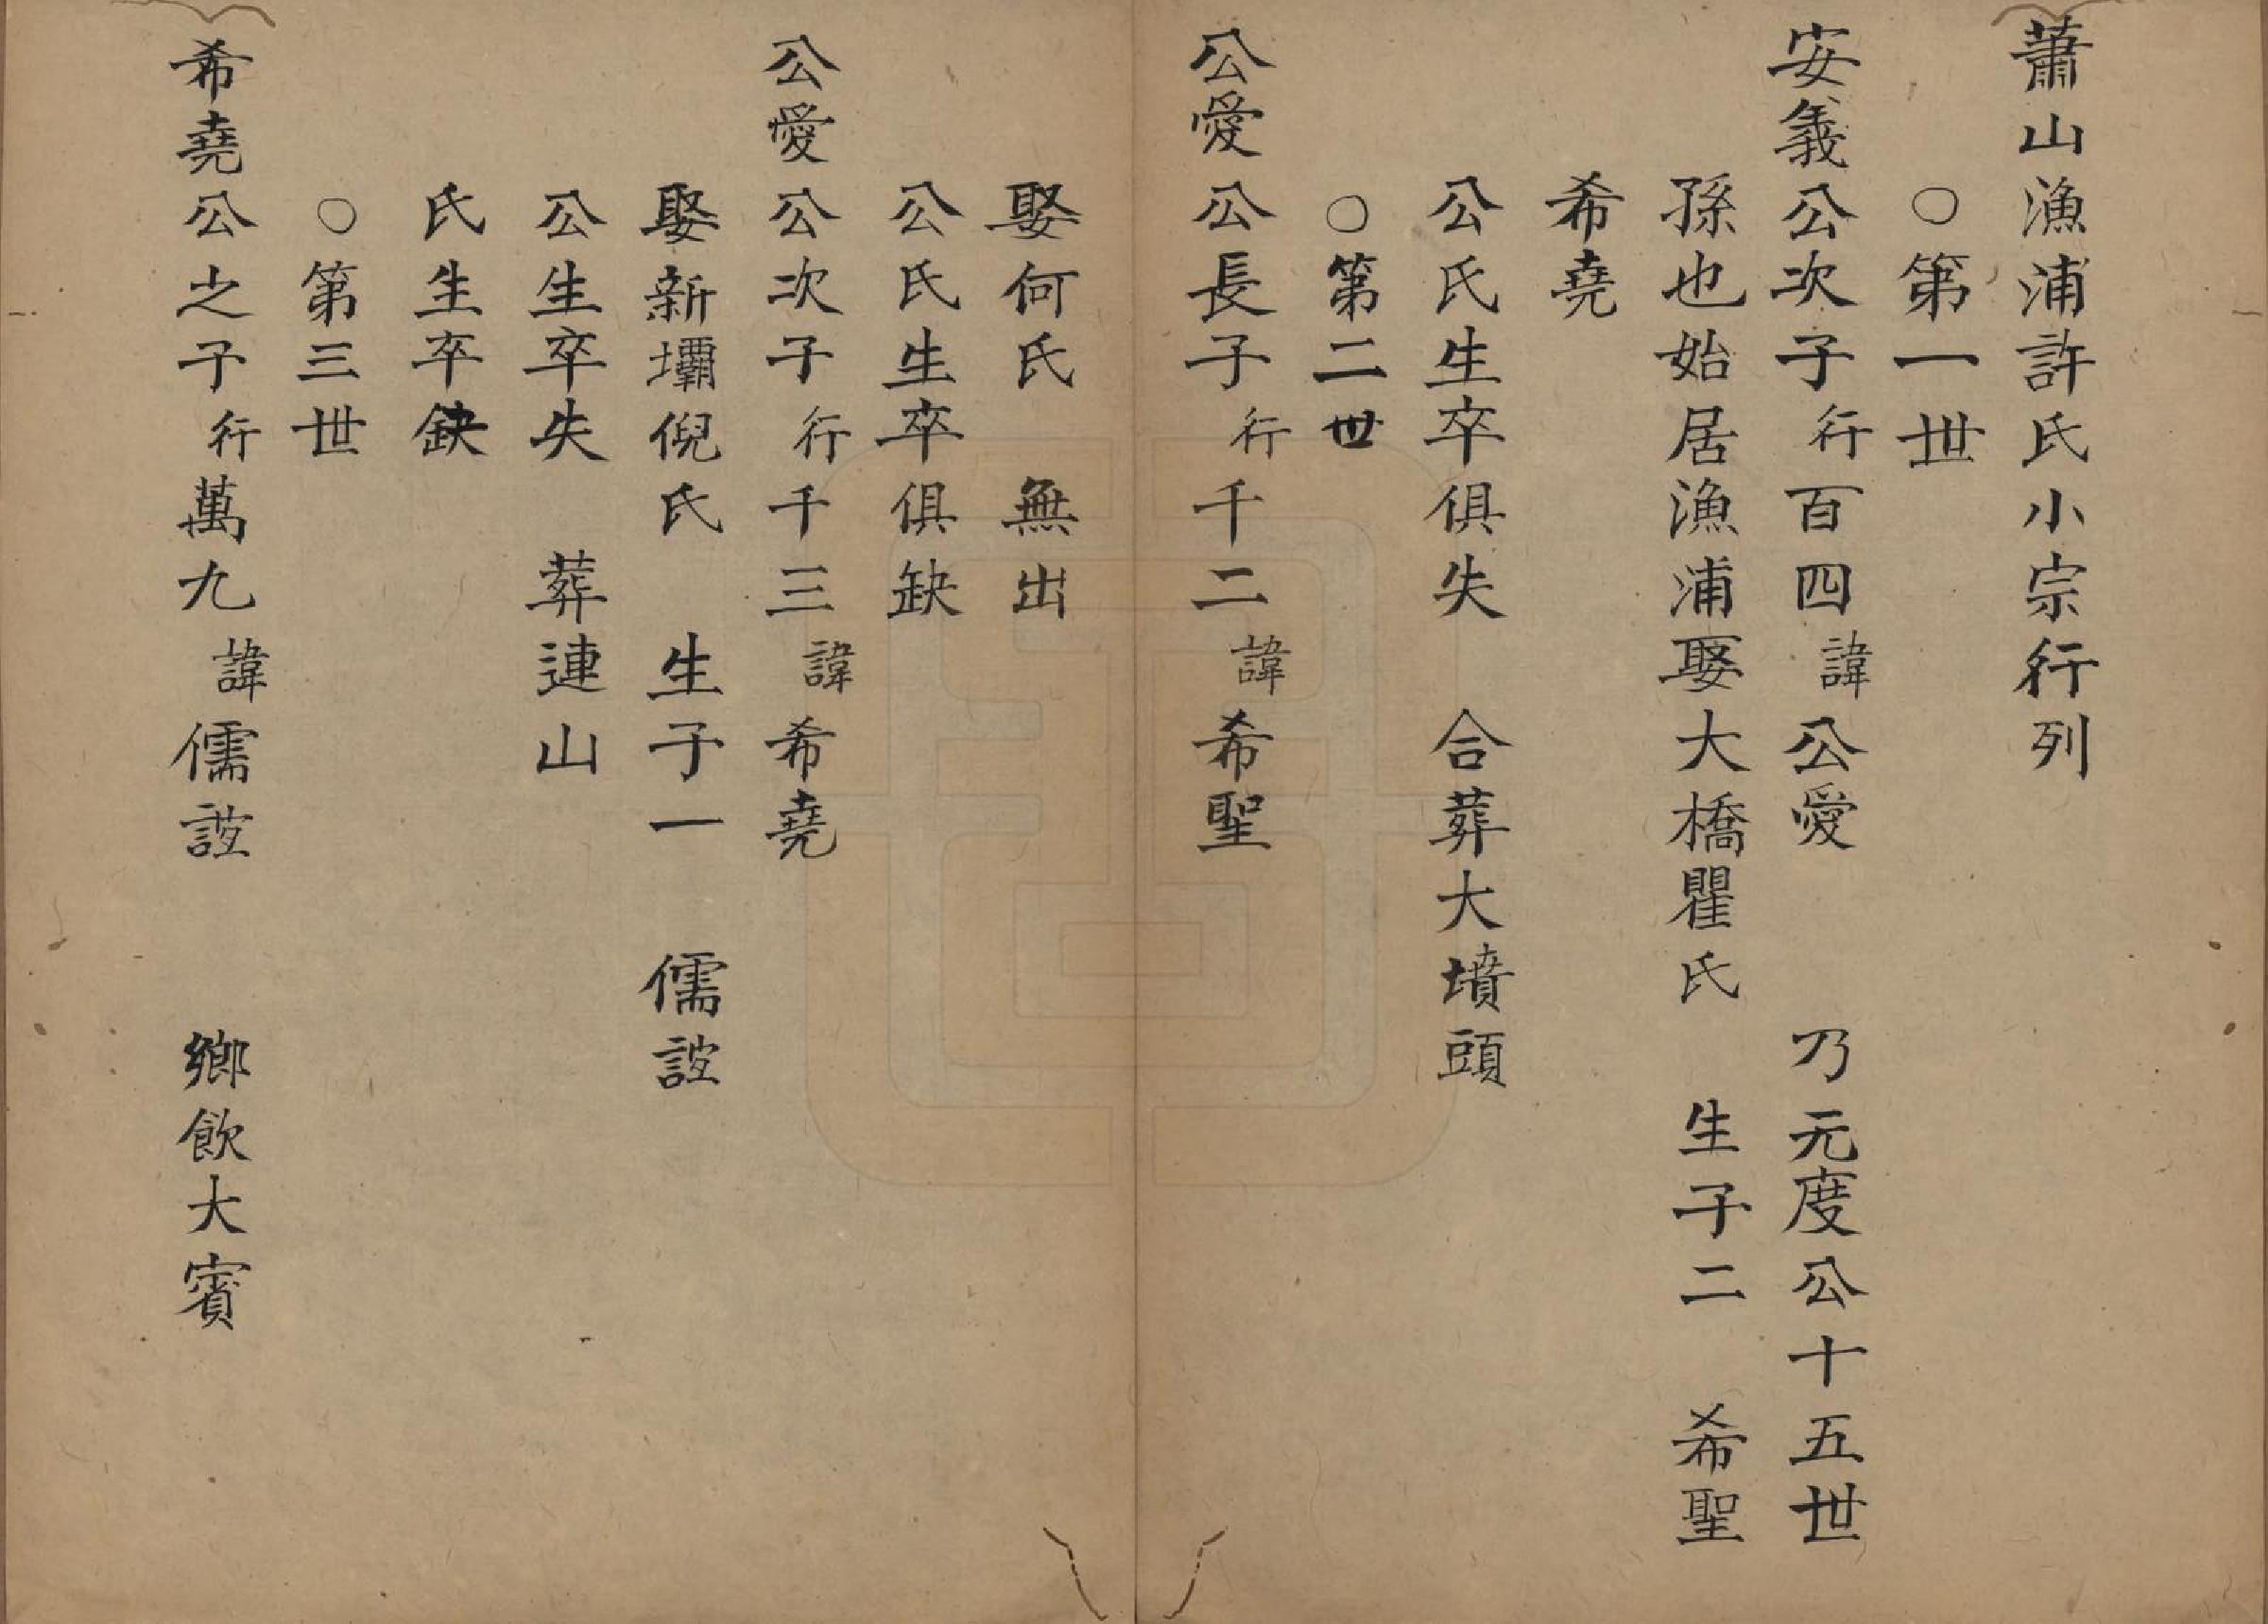 蕭山漁浦許氏小宗行列
○第一世
安義公次子行百四諱公愛　乃元度公十五世
孫也始居漁浦娶大橋瞿氏　生子二　希聖
希堯
公氏生卒俱失　合葬大墳頭
○第二世
公愛公長子行千二諱希聖
娶何氏　無出
公氏生卒俱缺
公愛公次子行千三諱希堯
娶新壩倪氏　生子一　儒詖
公生卒失　葬連山
氏生卒缺
○第三世
希堯公之子行萬九諱儒詖　鄉飲大賓